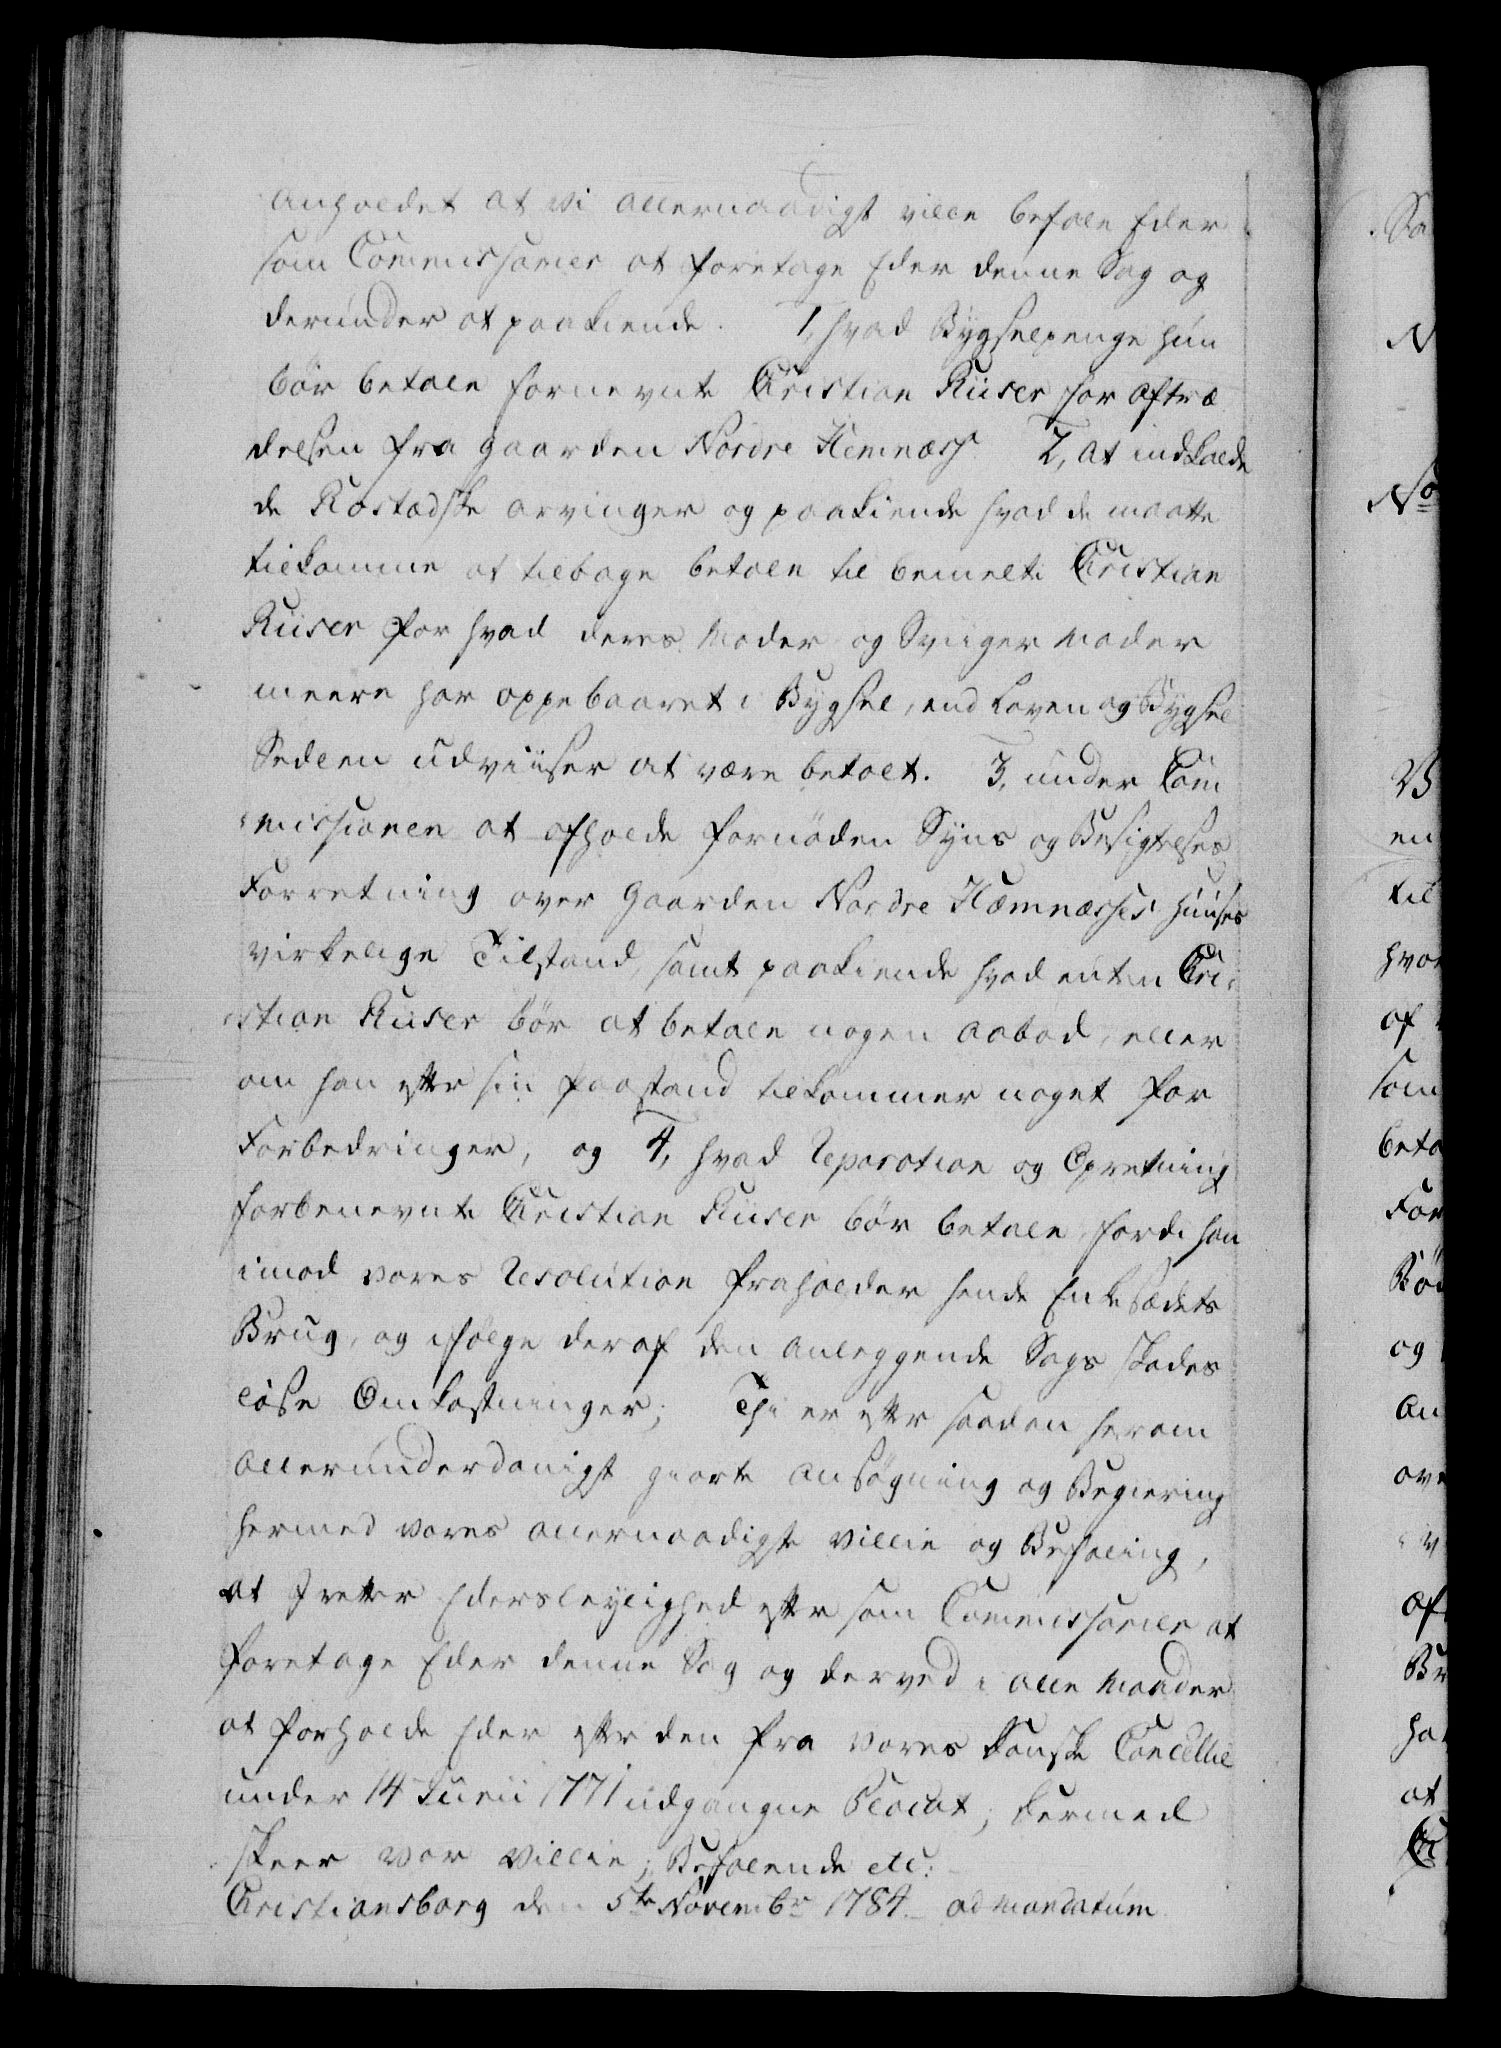 anholdet at vi allernaadigst ville befale Eder
som Commissarier at foretage Eder denne Sag og
derunder at paakiende. 1, hvad Bygselpenge hun
bör betale fornevnte Cristian Riiser for aftræ
delsen fra Gaarden Nordre Hemnæss 2, at indkalde
de Rostadske Arvinger og paakiende hvad de maatte
tilkomme at tilbage betale til bemelte Cristian
Riiser for hvad deres Moder og Sviiger Moder
meere har oppebaaret i Bygsel, end Loven og Bygsel
Sedlen udviiser at være betalt. 3, under Com
missionen at afholde fornöden Syns og Besigtelses
Forretning over Gaarden Nordre Hæmnæsses Huuses
virkelige Tilstand, samt paakiende hvad enten Cri
stian Riiser bör at betale nogen Aabod, eller
om han efter sin Paastand tilkommer noget for
Forbedringer, og 4, hvad Reparation og Opretning
forbenevnte Cristian Riiser bör betale, fordi han
imod vores Resolution fraholder hende Enkesædets
Brug, og ifölge deraf den anleggende Sags skades
löse Omkostninger; Thi er efter saadan herom
allerunderdanigst giorte Ansögning og Begiering
hermed vores allernaadigste Villie og Befaling,
at I retter Eders leylighed efter som Commissarier at
foretage Eder denne Sag og derved i alle Maader
at forholde Eder efter den fra vores Danske Cancellie
under 14 Junii 1771 udgangne Placat; dermed
skeer vor Villie; Befalende etc:
Cristiansborg den 5te Novembr 1784. ad mandatum